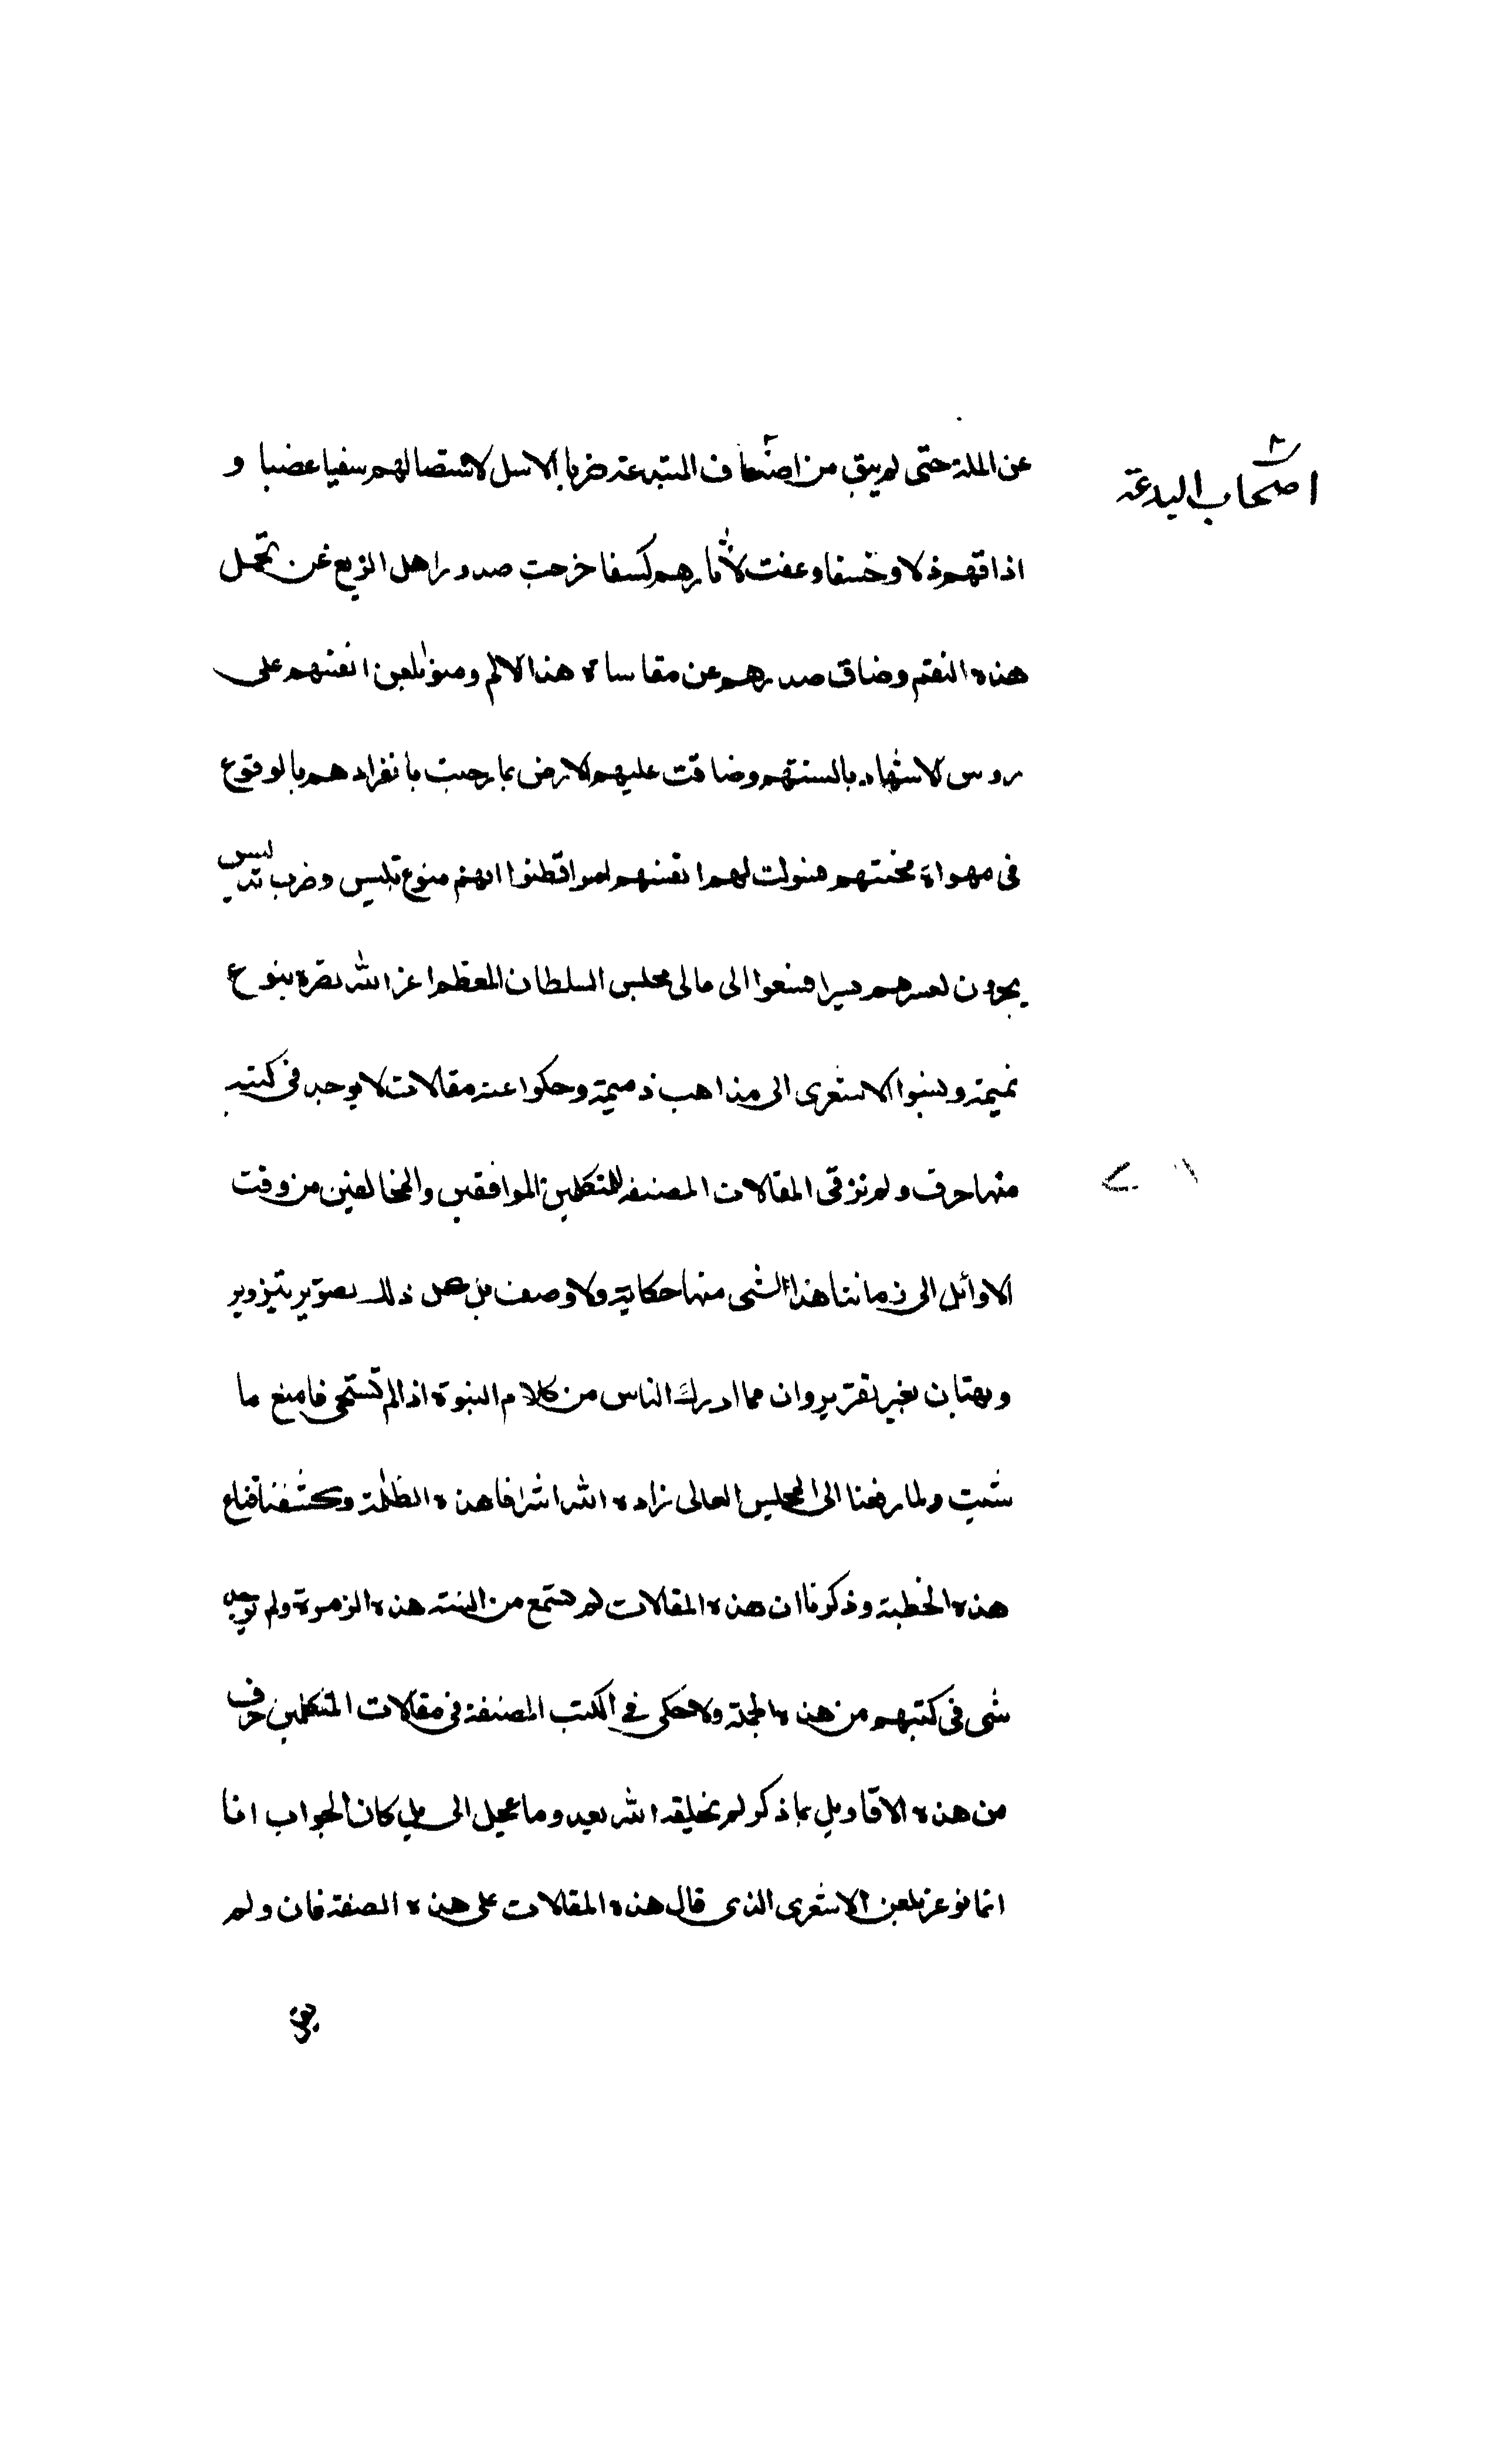 اصحاب البدعة
عن الملة حتى لم يبق من اصناف المبتدعة حزبا الا سل لاستصالهم سيفا عضبا و
اذاقهم ذلا وخسفا وعفت لآثارهم كسفا خرجت صدور اهل الزيع عن تحمل
هذه النقم وضاق صدرهم عن مقاساة هذا الالم ومنوا بلعن انفسهم على
روس الاشهاد بالسنتهم وضاقت عليهم الارض بما رحبت بانفرادهم بالوقوع
فى مهواة محنتهم فسولت لهم انفسهم امرا فظنوا انهم بنوع تلبيس وضرب تدليس
يجدون لعسرهم يسرا فسعوا الى عالى مجلس السلطان المعظم اعز الله نصره بنوع
نميمة ونسبوا الاشعرى الى مذاهب ذميمة وحكوا عنه مقالات لا يوجد فى كتبه
منها حرف ولم نر فى المقالات المصنفه للمتكلمين الموافقين والمخالفين من وقت
الاوائل الى زماننا هذا الشى منها حكاية ولا وصف بل كل ذلك تصوير بتزوير
وبهتان بغير تقرير وان مما ادرك الناس من كلام النبوة اذا لم تستحى فاصنع ما
شئت ولما رفعنا الى المجلس العالى زاده الله اشرافا هذه الظلمة وكشفنا قناع
هذه الخطبة وذكرنا ان هذه المقالات لم تسمع من السنة هذه الزمرة ولم توجد
شى فى كتبهم من هذه الجملة ولا حكى فى الكتب المصنفة فى مقالات المتكلمين حرف
من هذه الاقاويل بما ذكر لم يخلقه الله بعيد وما الى بل كان الجواب انا
انما نوعز بلعن الاشعرى الذى قال هذه المقالات على هذه الصفة فان ولم